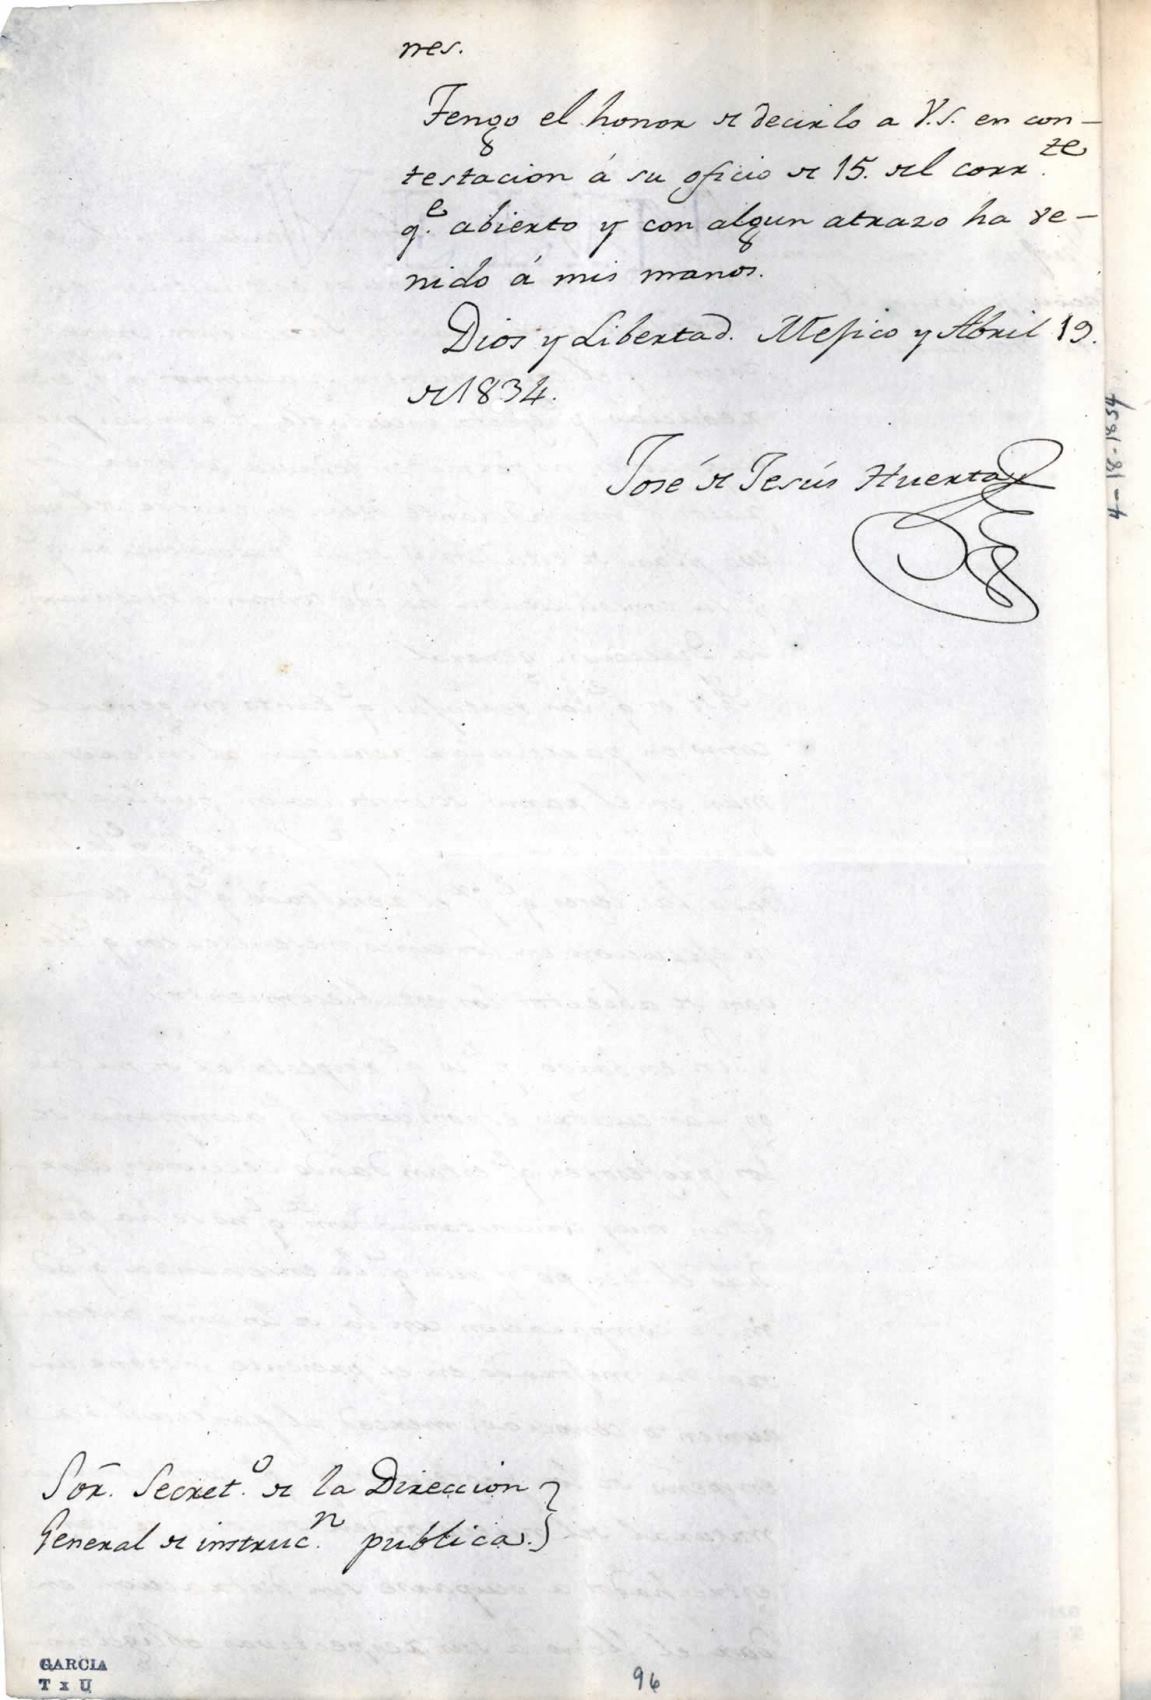 nes.
Tengo el honor de decirlo a V.S. en con-
testacion á su oficio de 15. del corr.te
q.e abierto y con algun atrazo ha ve-
nido á mis manos.
Dios y Libertad. Mejico y Abril 19.
de 1834.
José de Jesús Huerta
4-18-1834
Sōr. Secret.o de la Direccion
General de instruc.n publica.
GARCIA
T x U
96